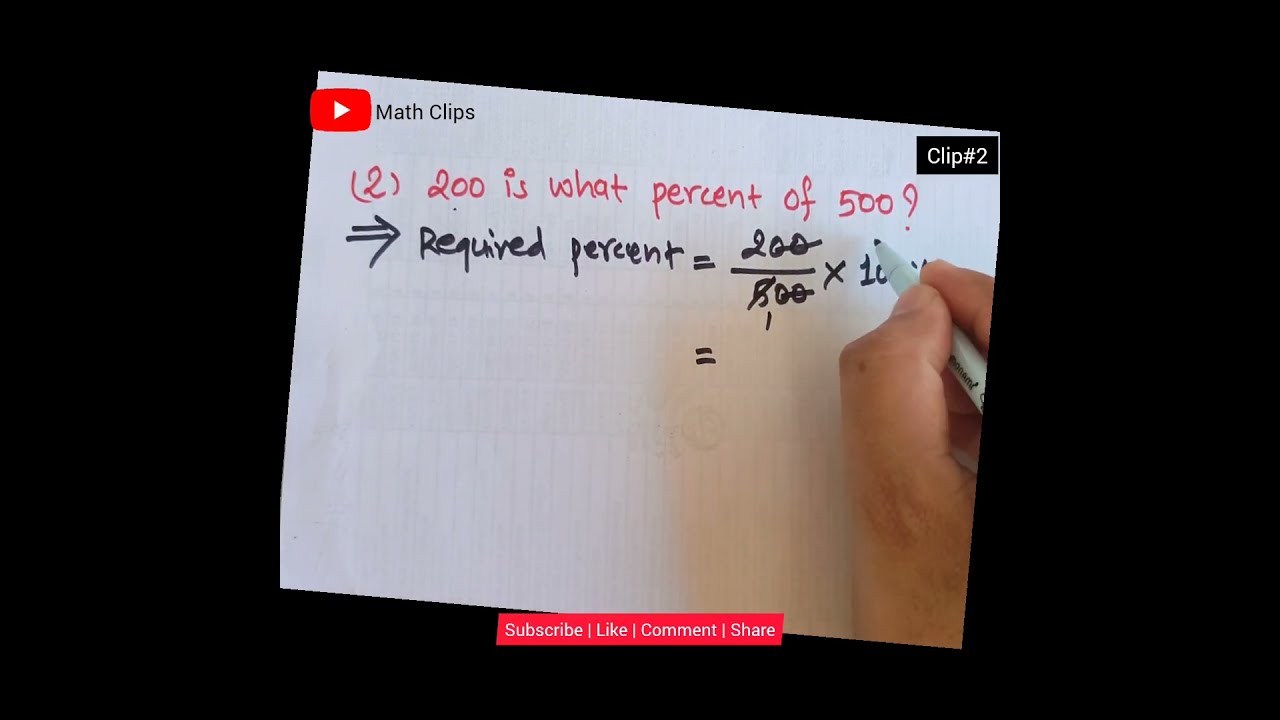 Math Clips
Clip#2
(2) 200 is what percent of 500?
⇒ Required percent = 200/500 ×
1
=
Subscribe | Like | Comment | Share